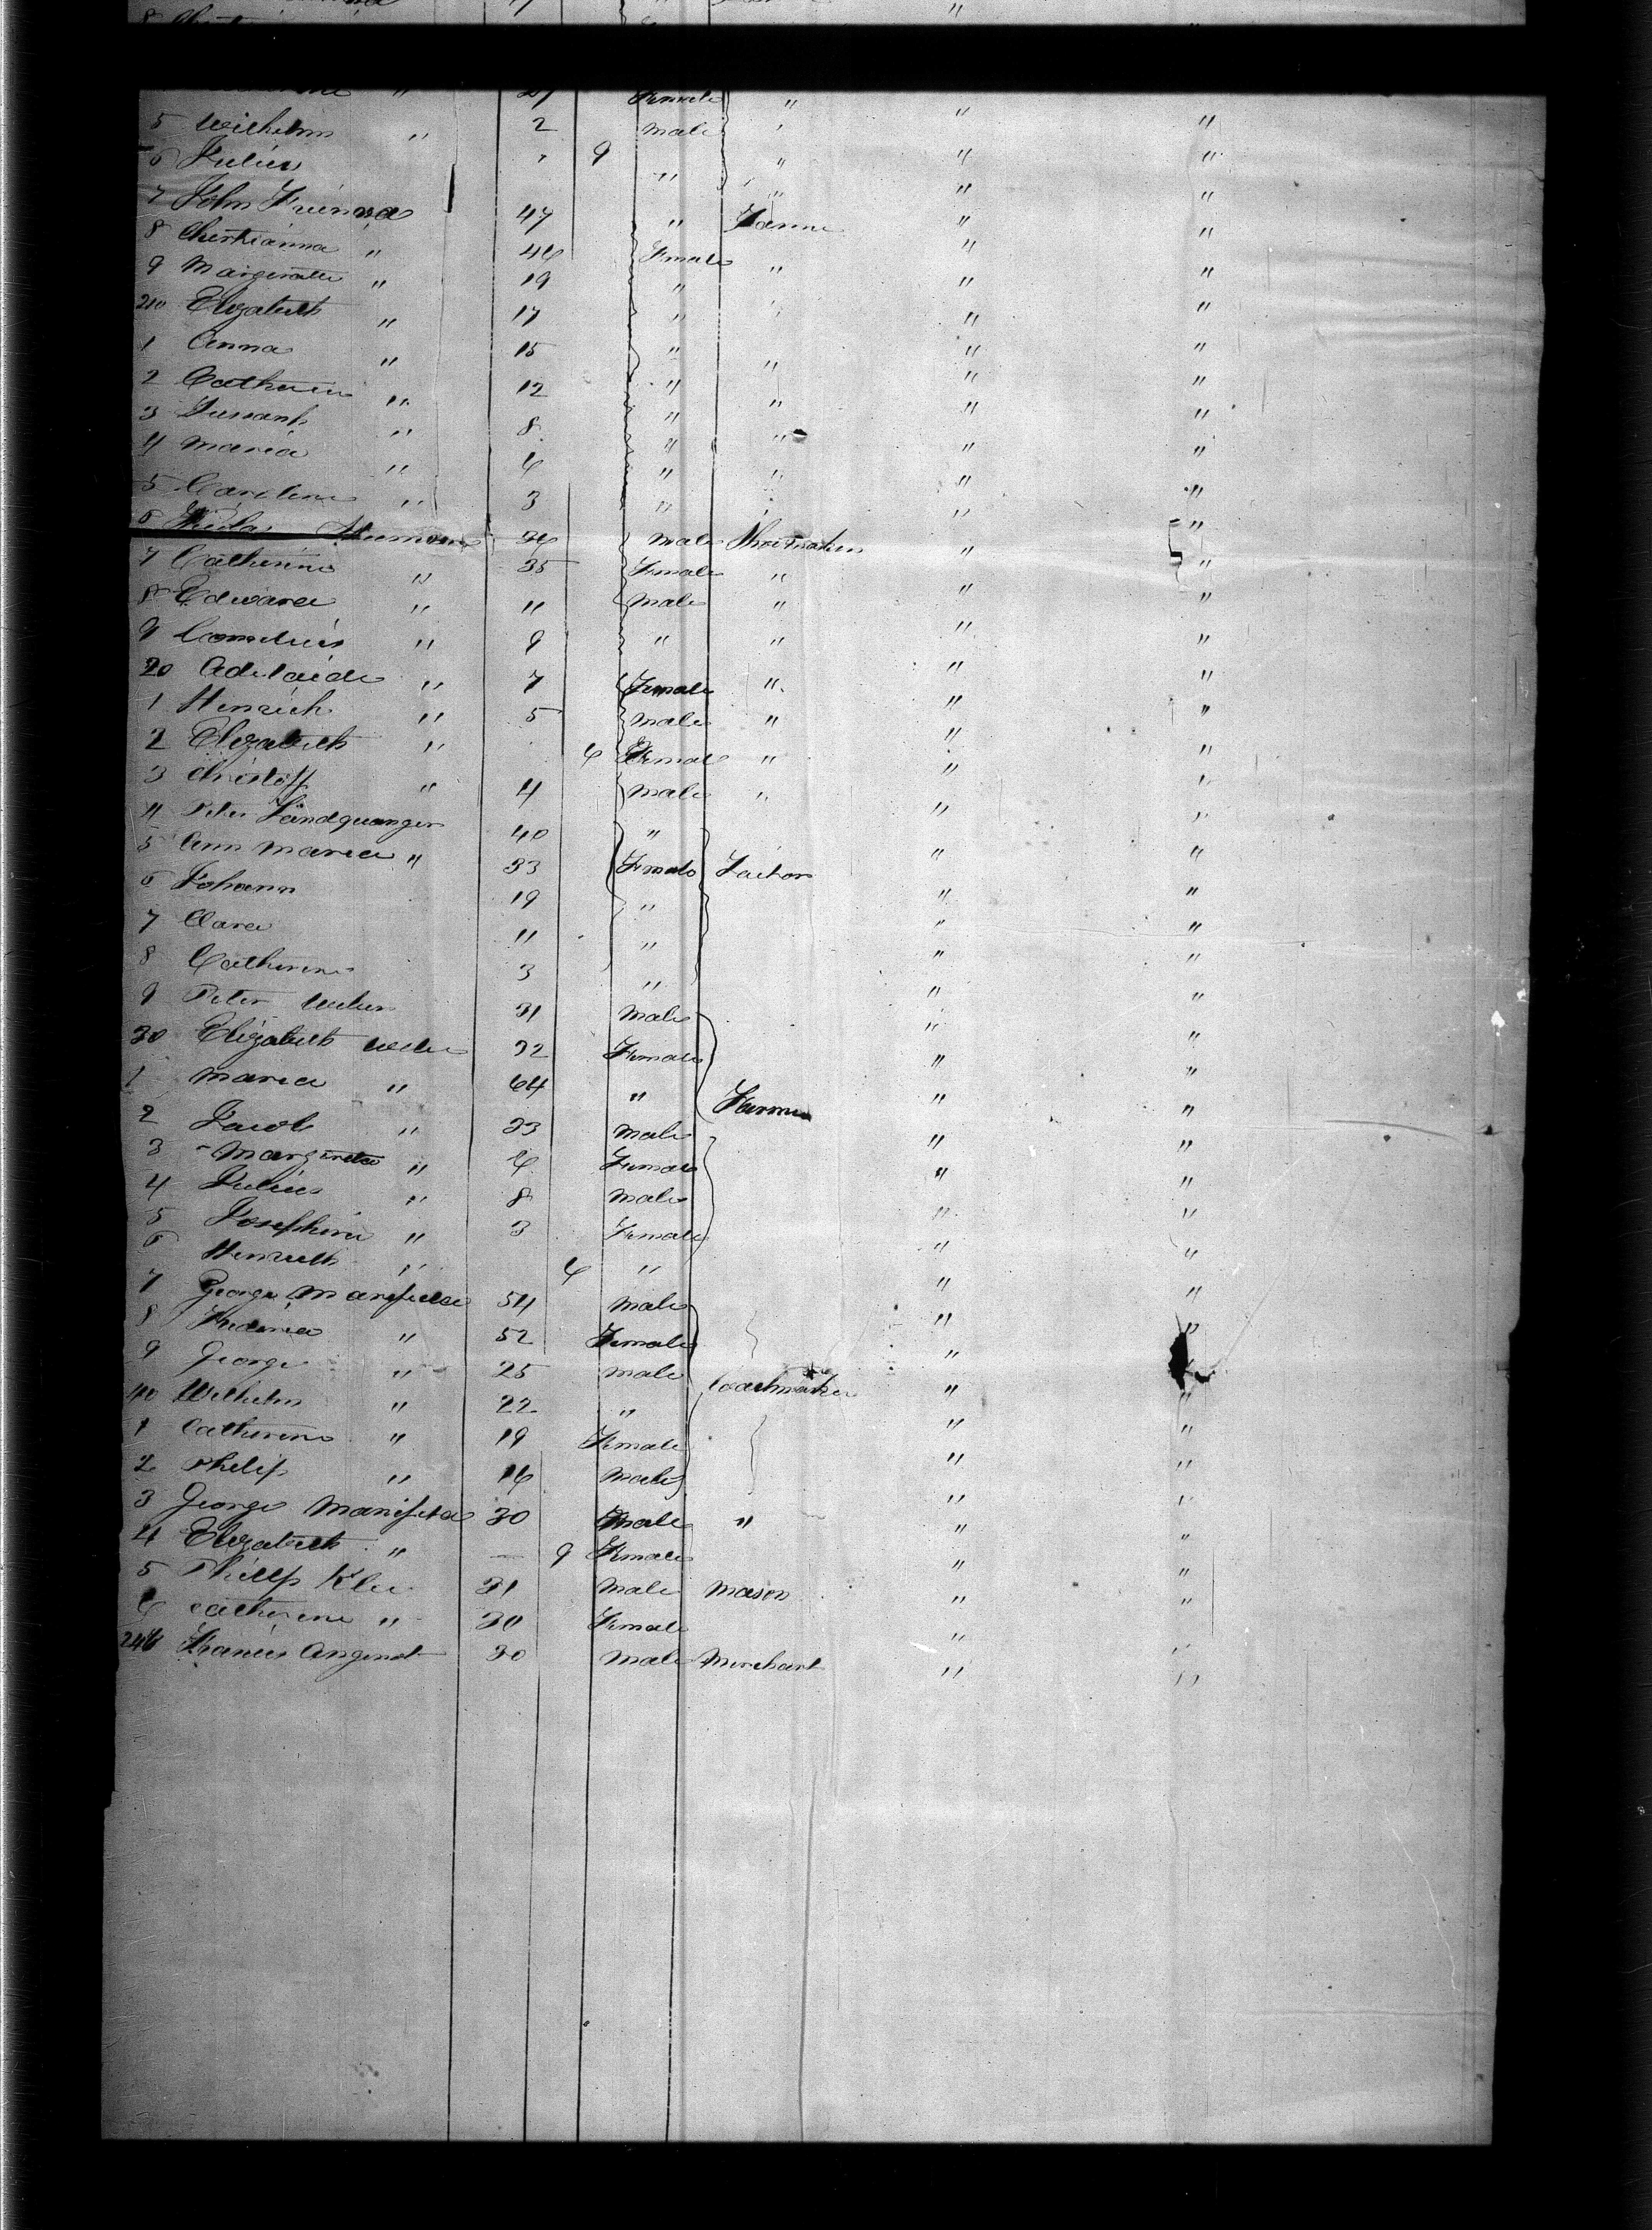 " 27 Female " "
5 Wilhelm " 2 male " " "
6 Julius " 9 " " " "
7 John 47 " Farmer " "
8 Christianna " 46 Female " " "
9 Margerette " 19 " " " "
210 Elizabeth " 17 " " " "
1 Anna " 15 " " " "
2 Catherine " 12 " " " "
3 Sussanh " 8 " " " "
4 Maria " 6 " " " "
5 Caroline " 3 " " " "
6 36 Male Shoemaker " "
7 Catherine " 35 Female " " "
8 Edward " 11 Male " " "
9 Cornelius " 9 " " " "
20 Adelaide " 7 Female " " "
1 Henrich " 5 male " " "
2 Elizabeth " 6 Female " " "
3 Christoff " 4 male " " "
4 Peter 40 " " "
5 Ann Maria " 33 Female " "
6 Johann 19 " " "
7 Clara 11 " " "
8 Catherine 3 " " "
9 Peter Weber 31 Male " "
30 Elizabeth Weber 32 Female " "
1 Maria " 64 " Farmer " "
2 Jacob " 33 Male " "
3 Margretta " 6 Female " "
4 Julius " 8 Male " "
5 Josephine " 3 Female " "
6 " 6 " " "
7 George 54 Male " "
8 " 52 Female " "
9 George " 25 male Coachmaker " "
40 Wilhelm " 22 " " "
1 Catherine " 19 Female " "
2 Philip " 16 Male " "
3 George 30 Male " " "
4 Elizabeth " 9 Female " "
5 Phillip Klee 31 Male Mason " "
6 Catherine " 30 Female " "
246 Francis 30 Male Merchant " "